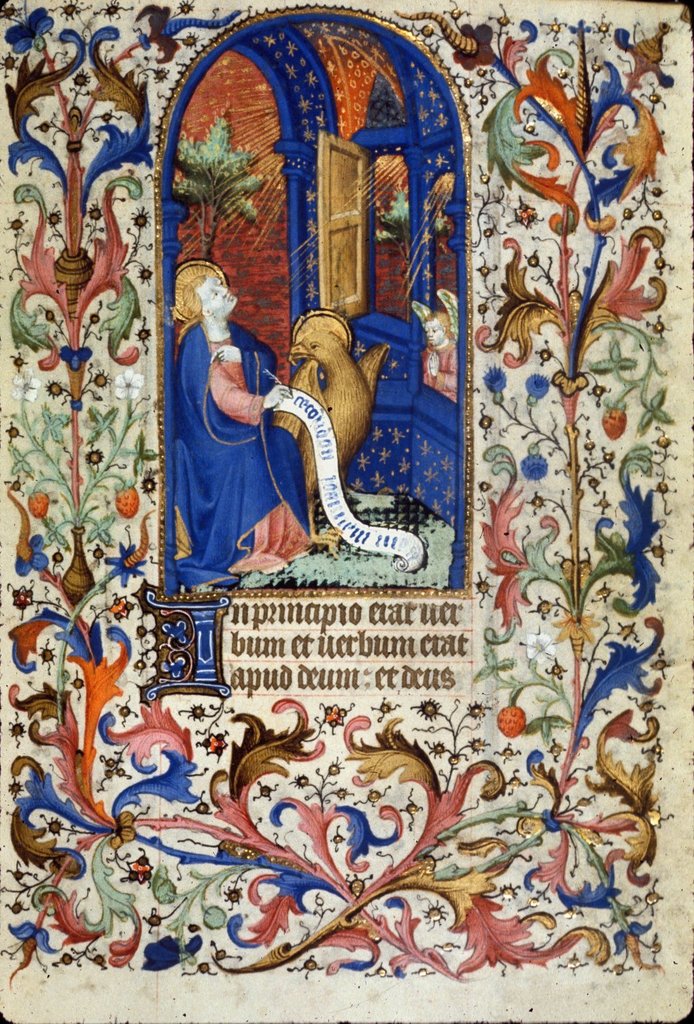 In principio erat uer
bum et uerbum erat
apud deum : et deus